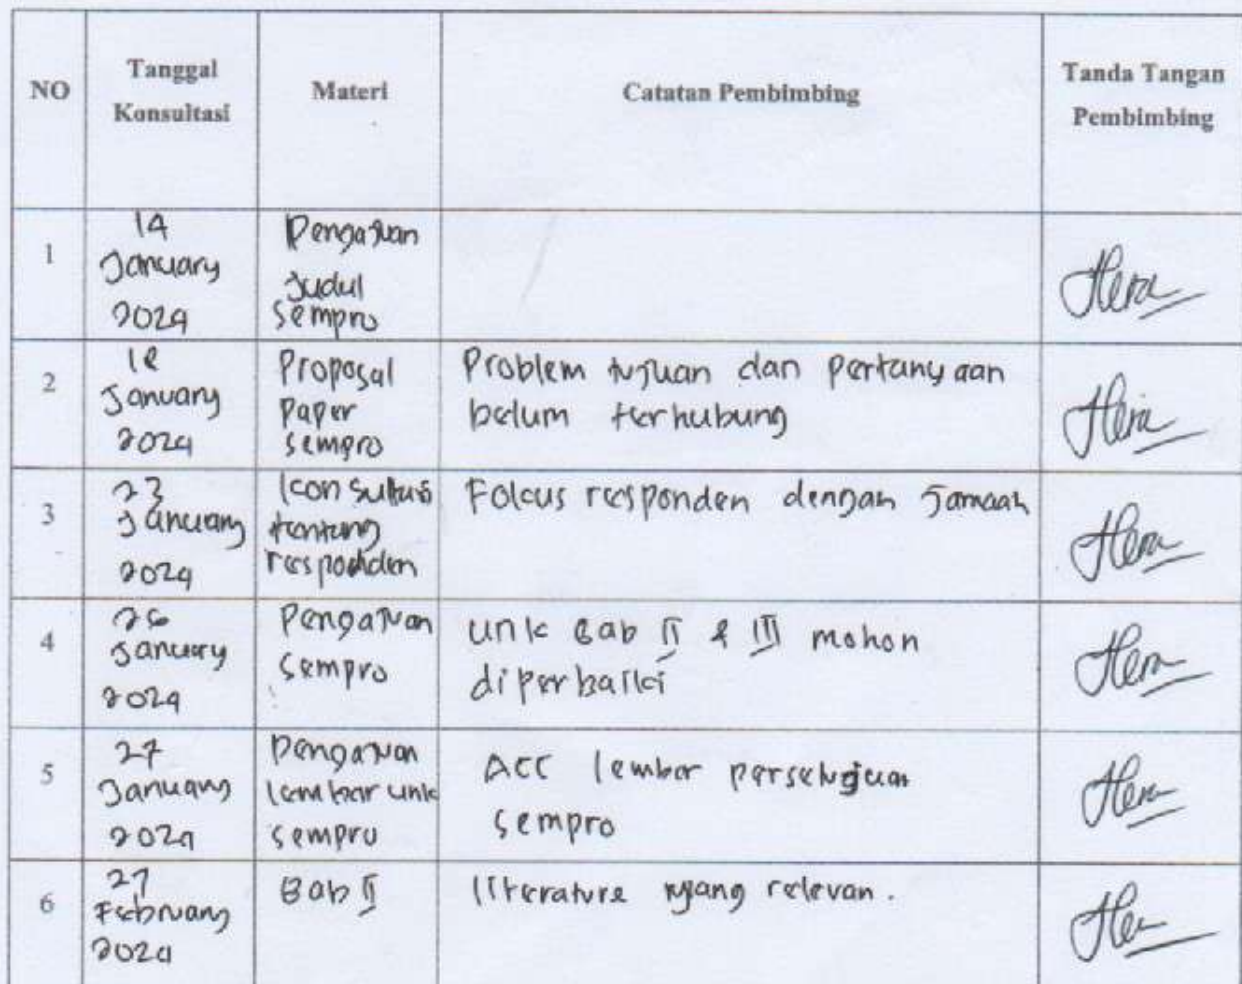 NO
Tanggal Konsultasi
Materi
Catatan Pembimbing
Tanda Tangan Pembimbing
1
14 January 2024
Pengajuan
Judul
Sempro
Hera
2
18 January 2024
Proposal
Paper
sempro
Problem tujuan dan pertanyaan
belum terhubung
Hera
3
23 January 2024
Konsultasi
tentang
responden
Fokus responden dengan Jamaah
Hera
4
26 January 2024
Pengajuan
Sempro
unk Bab II & III mohon
diperbaiki
Hera
5
27 January 2024
Pengajuan
lembar unk
sempro
ACC lembar persetujuan
sempro
Hera
6
27 February 2024
Bab II
literature yang relevan.
Hera